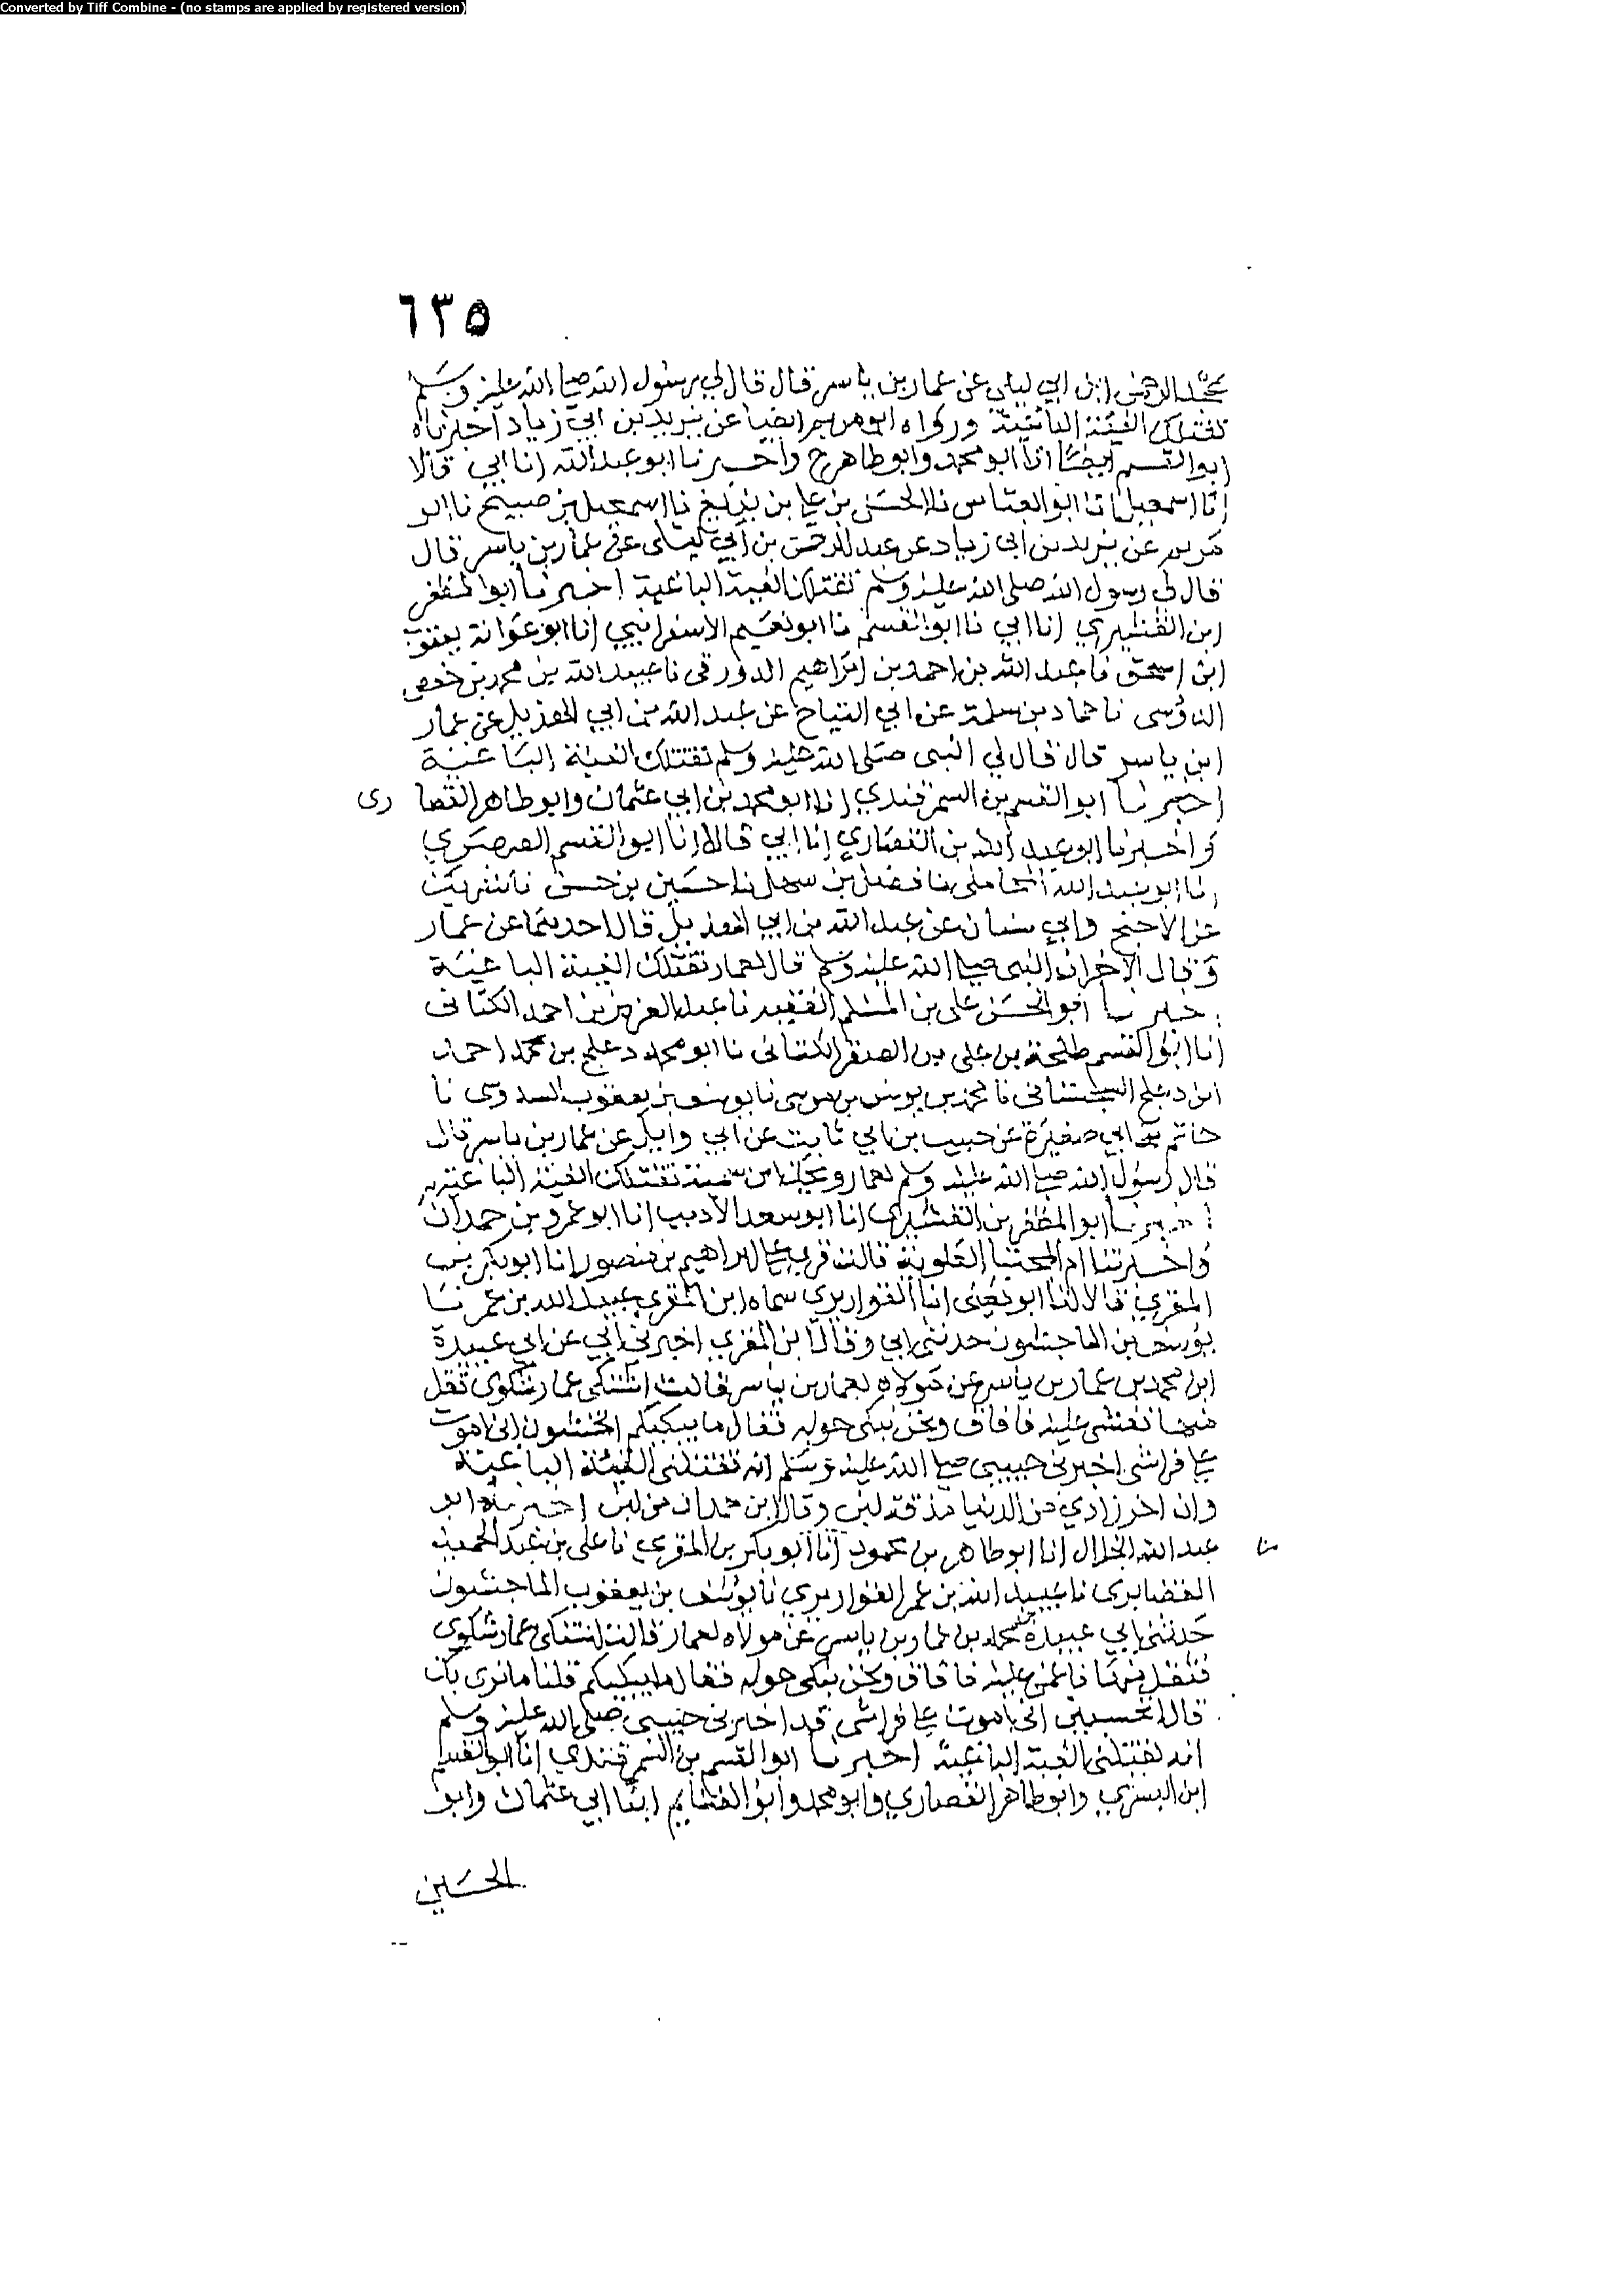 Converted by Tiff Combine - (no stamps are applied by registered version)
٦٣٥
عبد الرحمن ابن ابي ليلى عن عمار بن ياسر قال قال لي رسول الله صلى الله عليه وسلم
تقتلك الفئة الباغية ورواه ابو مريم ايضا عن يزيد بن ابي زياد اخبرناه
ابو القسم ايضا انا ابو محمد وابو طاهر ح واخبرنا ابو عبد الله انا ابي قالا
انا اسمعيل نا ابو العباس نا الحسن بن علي بن بزيع نا اسمعيل بن صبيح نا ابو
مريم عن يزيد بن ابي زياد عن عبد الرحمن بن ابي ليلى عن عمار بن ياسر قال
قال لي رسول الله صلى الله عليه وسلم تقتلك الفية الباغية اخبرنا ابو المظفر
ابن القشيري انا ابي نا ابو القسم نا ابو نعيم الاسفرايني انا ابو عوانة يعقوب
ابن اسحق نا عبد الله بن احمد بن ابراهيم الدورقي نا عبيد الله بن محمد بن حفص
نا حماد بن سلمة عن ابي التياح عن عبد الله بن ابي الهذيل عن عمار
ابن ياسر قال قال لي النبي صلى الله عليه وسلم تقتلك الفئة الباغية
اخبرنا ابو القسم بن السمرقندي انا ابو محمد بن ابي عثمان وابو طاهر القصا ري
واخبرنا ابو عبد الله بن القصاري انا ابي قالا انا ابو القسم الصرصري
نا ابو عبد الله المحاملي نا فضل بن سهل نا حسين بن حسن نا شريك
عن الاجلح وابي سنان عن عبد الله بن ابي الهذيل قال احدهما عن عمار
وقال الاخر ان النبي صلى الله عليه وسلم قال لعمار تقتلك الفئة الباغية
اخبرنا ابو الحسن علي بن المسلم الفقيه نا عبد العزيز بن احمد الكتاني
انا ابو القسم طلحة بن علي بن الصقر الكتاني نا ابو محمد دعلج بن محمد احمد
ابن دعلج السجستاني نا محمد بن يونس بن موسى نا يوسف بن يعقوب السدوسي نا
حاتم بن ابي صغيرة عن حبيب بن ابي ثابت عن ابي وايل عن عمار بن ياسر قال
قال رسول الله صلى الله عليه وسلم لعمار ويحك ابن سمية تقتلك الفئة الباغية
اخبرنا ابو المظفر بن القشيري انا ابو سعد الاديب انا ابو عمرو بن حمدان
واخبرتنا ام المجتبا العلوية قالت قري علي ابراهيم بن منصور انا ابو بكر بن
المقري قالا انا ابو يعلى انا القواريري سماه ابن المقري عبيد الله بن عمر نا
يوسف بن الماجشون حدثني ابي وقال ابن المقري اخبرني ابي عن ابي عبيدة
ابن محمد بن عمار بن ياسر عن مولاة لعمار بن ياسر قالت اشتكى عمار شكوى ثقل
منها فغشي عليه فافاق ونحن نبكي حوله فقال ما يبكيكم اتخشون اني اموت
علي فراشي اخبرني حبيبي صلى الله عليه وسلم انه تقتلني الفئة الباغية
وان اخر زادي من الدنيا مذقة لبن وقال ابن حمدان من لبن اخبرناه ابو
عبد الله الخلال انا ابو طاهر بن محمود انا ابو بكر بن المقري نا علي بن عبد الحميد
الغضايري نا عبيد الله بن عمر القواريري نا يوسف بن يعقوب الماجشون
حدثني ابي عبيدة محمد بن عمار بن ياسر عن مولاة لعمار قالت اشتكى عمار شكوى
فثقل منها فاغمي عليه فافاق ونحن نبكي حوله فقال ما يبكيكم قلنا ما نرى بك
قال اتحسبين اني اموت علي فراشي قد اخبرني حبيبي صلى الله عليه وسلم
انه تقتلني الفية الباغية اخبرنا ابو القسم بن السمرقندي انا ابو القسم
ابن البسري وابو طاهر القصاري وابو محمد وابو الغنايم ابنا ابي عثمان وابو
الحسين